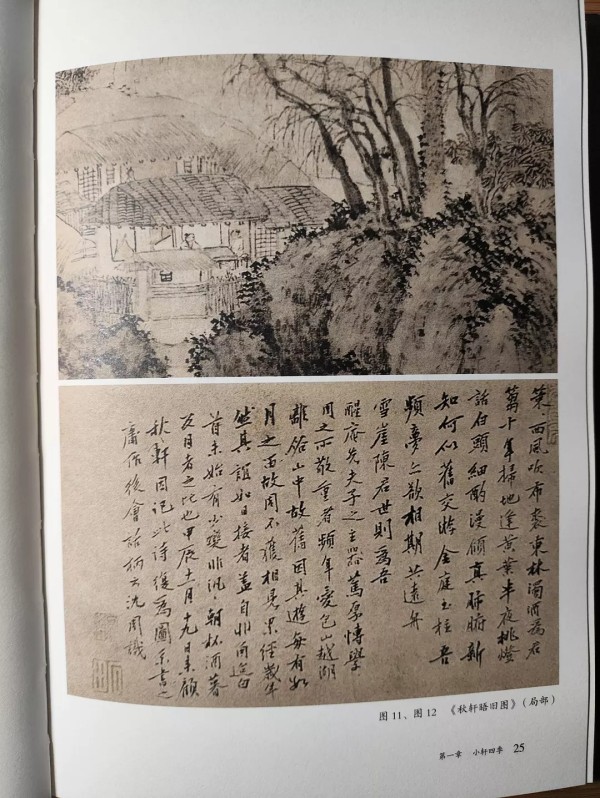 西風吹布裘東林濁酒為君
蒭十年掃地逢黃葉半夜挑燈
話白頭細酌漫傾真肺腑新
知何似舊交游金庭玉柱吾
頻夢亦欲相期共遠舟
雪崖陳君世則為吾
醒庵先夫子之主器篤厚博學
周之所敬重者頻年愛包山越湖
山中故舊因其遊每有如
月之西故周不獲相見累經歲年
然其誼如日接者蓋自非同迨白
首未始有少變非汎朝杯酒暮
反目者之比也甲辰十月十九日來顧
秋軒因記此詩復為圖系書之
庸作後會話柄云沈周識
图11、图12 《秋轩晤旧图》（局部）
第一章 小轩四季 25